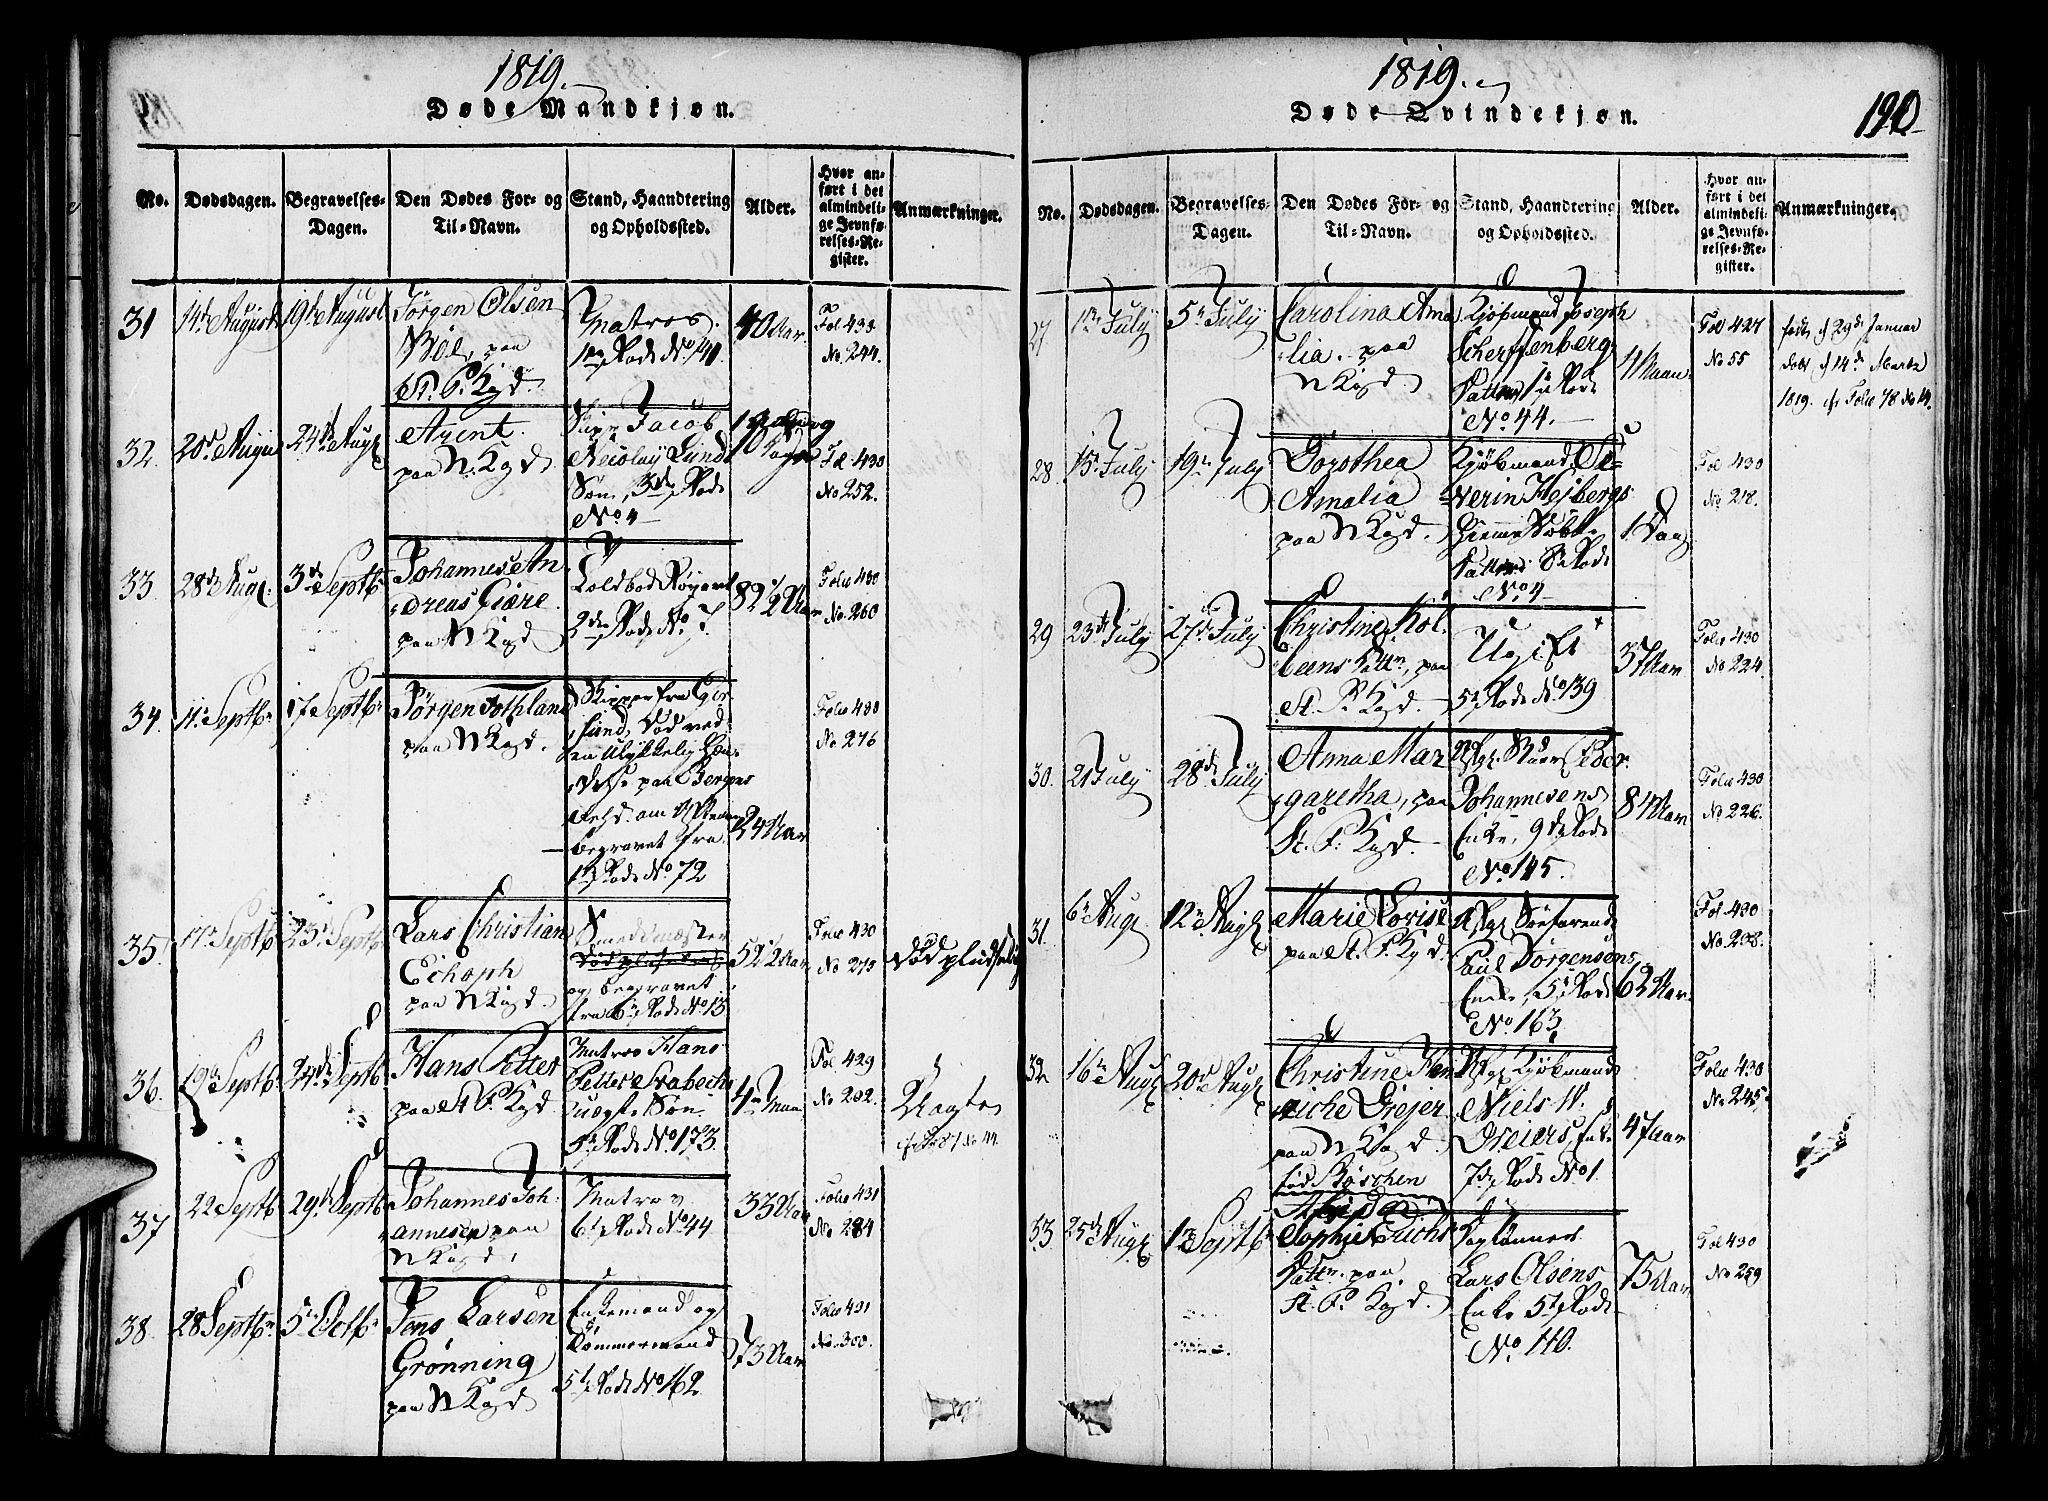 1819.
Døde Mandkjøn.
No. Dødsdagen. Begravelses-Dagen. Den Dødes For- og Til-Navn. Stand, Haandtering og Opholdssted. Alder. Hvor anført i det almindelige Jevnførelses-Register. Anmærkninger.
31 14de August 19de August Jørgen Olsen
paa
St. P. Kgd.
Matros
1ste Rode No. 141.
40 Aar
Fol 430
No 244.
32. 20de August 24de Aug.
Arent
paa N. Kgd.
Jacob
Nicolay Lunds
Søn, 3die Rode
No 4
10 Dage
Fol. 430
No 252.
33. 28de Aug. 3die Septbr
Johannes An-
dreas Giære
paa N Kgd
2den Rode No. 7.
82 1/2 Aar
Folio 430
No. 260
34. 11te Septbr 17 Septbr
Jørgen
paa N Kgd.
Skipper fra
sund, Død ved
en Ulykkelig Hæn-
delse paa Bergens
begravet fra
1ste Rode No. 72
24 Aar
Folio 430
No 276
35. 17de Septbr 23de Septbr
Lars Christian
Echoph
paa N Kgd.
Smedemæster
og begravet
fra 6te Rode No. 13
52 1/2 Aar
Folio 430
No 273
Død pludselig
36. 19de Septbr. 24de Septbr
Hans Petter
paa St. P. Kgd
Matros Hans
Petter
uægte Søn
5te Rode No. 173.
4 Maan
Fol. 429
No 202.
Uægte
37 22 Septbr 29de Septbr
Johannes Joh-
annesen paa
N Kgd.
Matros
6te Rode No. 44
33 Aar
Folio 431
No 284
38. 28 Septbr. 5te Octbr
Jens Larsen
Grønning
paa N Kgd
Enkemand og
Tømmermand
5te Rode No 162.
73 Aar
Folio 431
No. 300.
1819.
Døde Qvindekjøn.
190
No. Dødsdagen. Begravelses-Dagen. Den Dødes For- og Til-Navn. Stand, Haandtering og Opholdssted. Alder. Hvor anført i det almindelige Jevnførelses-Register. Anmærkninger.
27 1ste July 5te July
Carolina Ama
lia. paa
N Kgd
Kjøpmand Joseph
Scherffenberg
Datter, Rode
No 44.
4 Maan
Fol 427
No 55
født d 29de Januar
døbt d 14de Martz
1819. cfr Folio 78 No 14.
28. 15de July 19de July
Dorothea
Amalia
paa N Kgd.
Kjøbmand Se-
verin Hejbergs
Hjemmedøbt
Datter Rode
No. 4
1 Dag
Fol 430
No. 218.
29 23de July 27de July
Christine Kol-
beens Dattr, paa
St. P. Kgd.
Ugift
5te Rode No. 139
37 Aar
Folio 430
No 224.
30. 21 July 28de July
Anna Mar
garetha, paa
St. P. Kgd.
Afg. Peder
Johannesens
Enke, 9de Rode
No. 145.
84 Aar
Folio 430
No. 226.
31. 6te Aug 12te Aug.
Marie Lovise
paa St. P. Kgd.
Afg. Søefarende
Paul Jørgensens
Enke, 5te Rode
No. 163.
62 Aar.
Fol. 430
No. 238.
32 16de Aug. 20de Aug.
Christine Hen
riche Drejer
paa N Kgd
Afg. Kjøbmand
Niels W.
Dreiers, Enke
7de Rode No 1.
47 Aar
Folio 430
No 245.
33. 25de Aug. 1ste Septbr
Sophie Erichs
Dattr. paa
St. P. Kgd.
Dagløннers
Lars Olsens
Enke 5te Rode
No. 110.
75 Aar
Fol 430
No 259